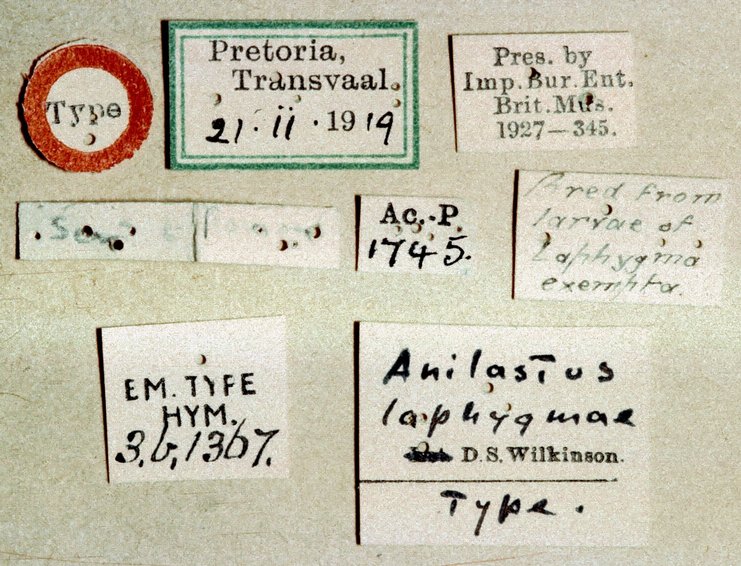 Type
Pretoria,
Transvaal.
21.II.1919
Pres. by
Imp.Bur.Ent.
Brit.Mus.
1927—345.
Ac.-P.
1745.
Bred from
larvae of
Laphygma
exempta.
EM. TYPE
HYM.
3.b.1367.
Anilastus
laphygmae
D.S.Wilkinson.
Type.